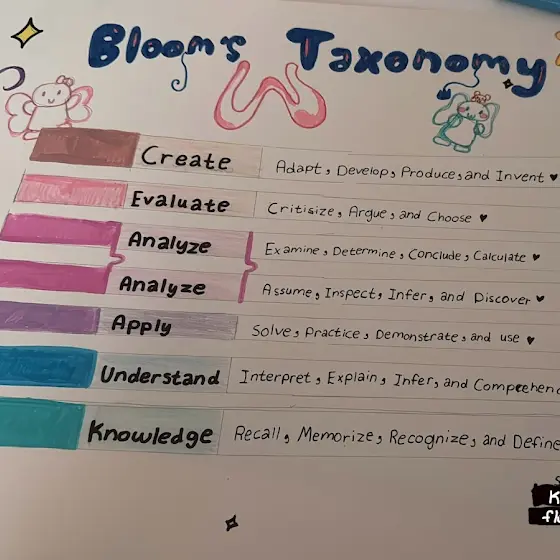 Bloom's Taxonomy
Create Adapt, Develop, Produce, and Invent
Evaluate Critisize, Argue, and Choose
Analyze Examine, Determine, Conclude, Calculate
Analyze Assume, Inspect, Infer, and Discover
Apply Solve, Practice, Demonstrate, and use
Understand Interpret, Explain, Infer, and
Knowledge Recall, Memorize, Recognize, and Define